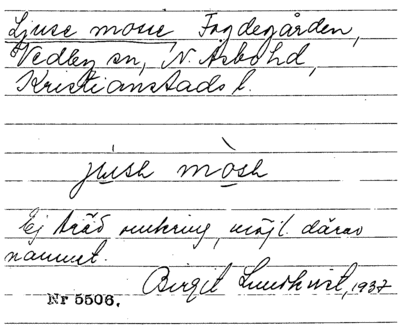 Ljuse mosse, Fogdegården,
Vedby sn, N. Åsbo hd,
Kristianstads l.
Ej träd omkring, möjl. därav
namnet.
Birgit Lundkvist, 1937
Nr 5506.